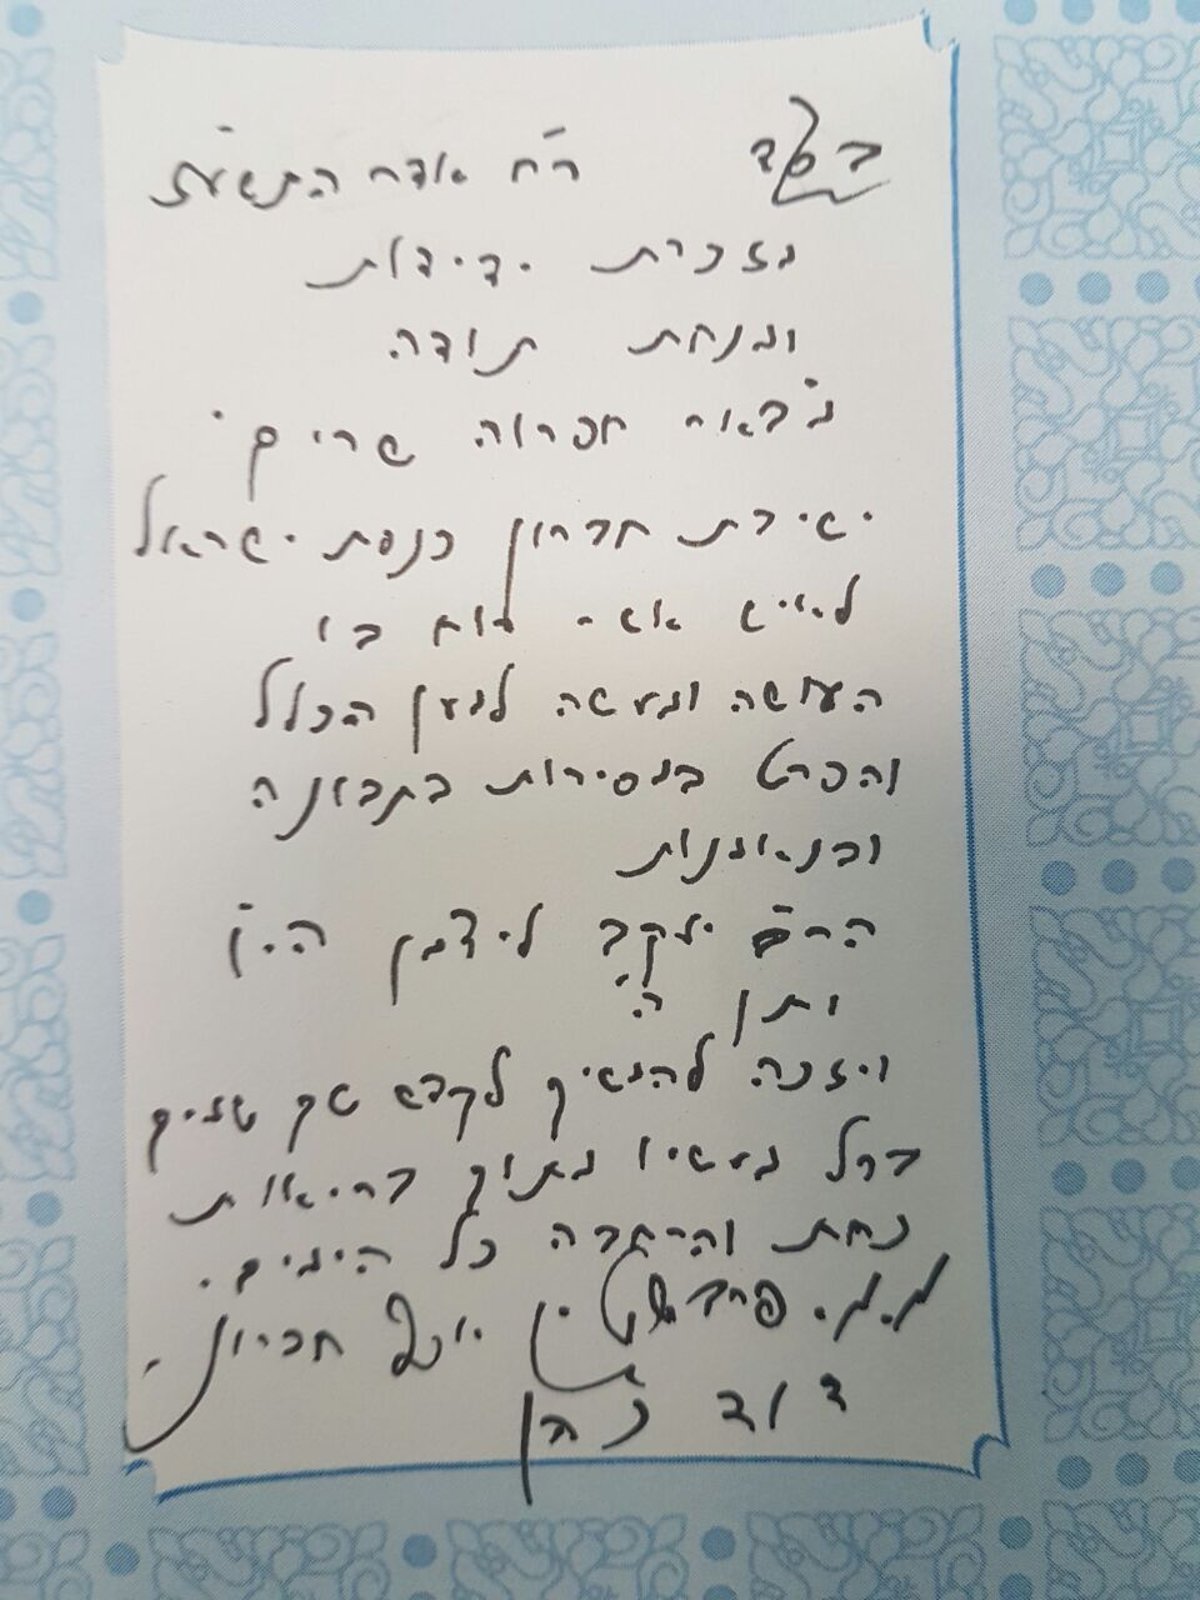 בס"ד ר"ח אדר התשע"ז
מזכרת ידידות
ומנחת תודה
"באר חפרוה שרים"
ישיבת חברון כנסת ישראל
לאיש אשר רוח בו
העושה ומעשה למען הכלל
והפרט במסירות בתבונה
ובנאמנות
הר"ר יעקב לידמן הי"ו
יתן ה'
ויזכה להמשיך לקדש שם שמים
בכל מעשיו מתוך בריאות
נחת והרחבה כל הימים.
מ.מ. פרבשטין יוסף חברוני
דוד כהן